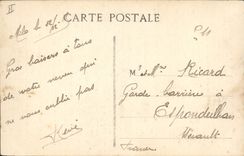 II
CARTE POSTALE
Gros baisers à tous
de votre neveu qui
ne vous oublie pas
Mr et Mme Ricard
Garde-barrière à
Espondeilhan
Hérault
France